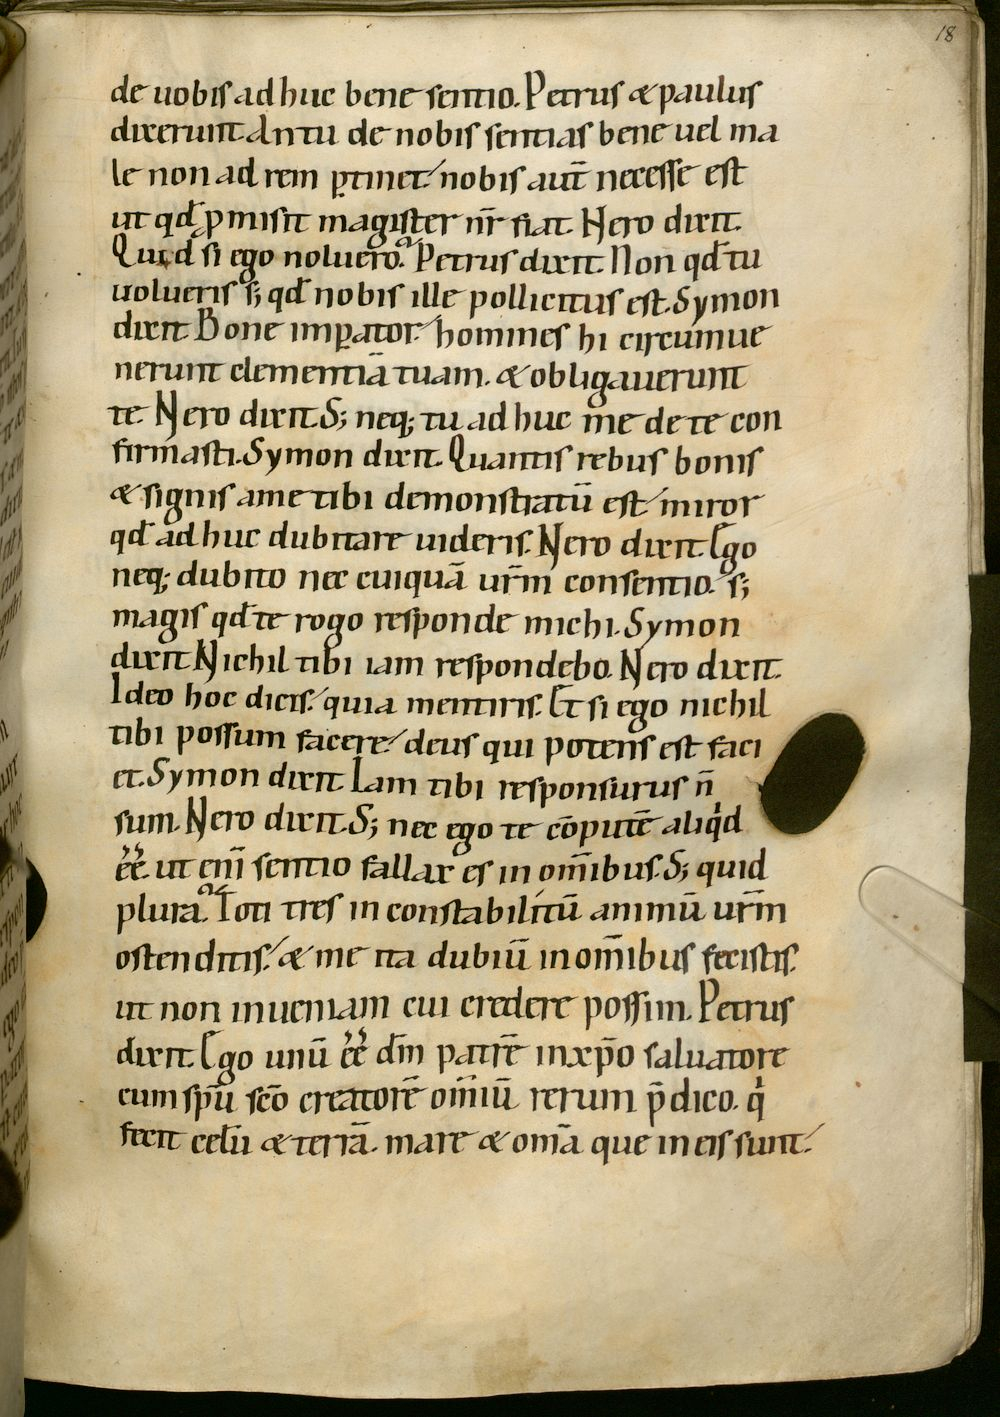 18
de uobis ad huc bene sentio. Petrus & paulus
dixerunt. An tu de nobis sentias bene uel ma
le non ad rem ꝑtinet. nobis aut̄ necesse est
ut qd̄ ꝓmisit magister nr̄ fiat. Nero dixit.
Quid si ego noluero? Petrus dixit. Non qd̄ tu
uolueris s; qd̄ nobis ille pollicitus est. Symon
dixit. Bone imꝑator. homines hi circumue
nerunt clementiā tuam. & obligauerunt
te. Nero dixit. S; neq; tu ad huc me de te con
firmasti. Symon dixit. Quantis rebus bonis
& signis a me tibi demonstratū est. miror
qd̄ ad huc dubitare uideris. Nero dixit. Ego
neq; dubito nec cuiquā ur̄m consentio. s;
magis qd̄ te rogo responde michi. Symon
dixit. Nichil tibi iam respondebo. Nero dixit.
Ideo hoc dicis. quia mentiris. Et si ego nichil
tibi possum facere. deus qui potens est faci
et. Symon dixit. Iam tibi responsurus n̄
sum. Nero dixit. S; nec ego te cōputē aliqͥd
ee̅. ut eni̅ sentio fallax es in om̄ibus. S; quid
plura? Toti tres in constabilitū animū ur̄m
ostenditis. & me ita dubiū in om̄ibus fecistis.
ut non inueniam cui credere possim. Petrus
dixit. Ego unū ee̅ dm̄ patrē in xp̄o saluatore
cum sp̄u sc̄o creatorē om̄iū rerum p̄dico. qͥ
fecit celū & terrā. mare & om̄a que in eis sunt.